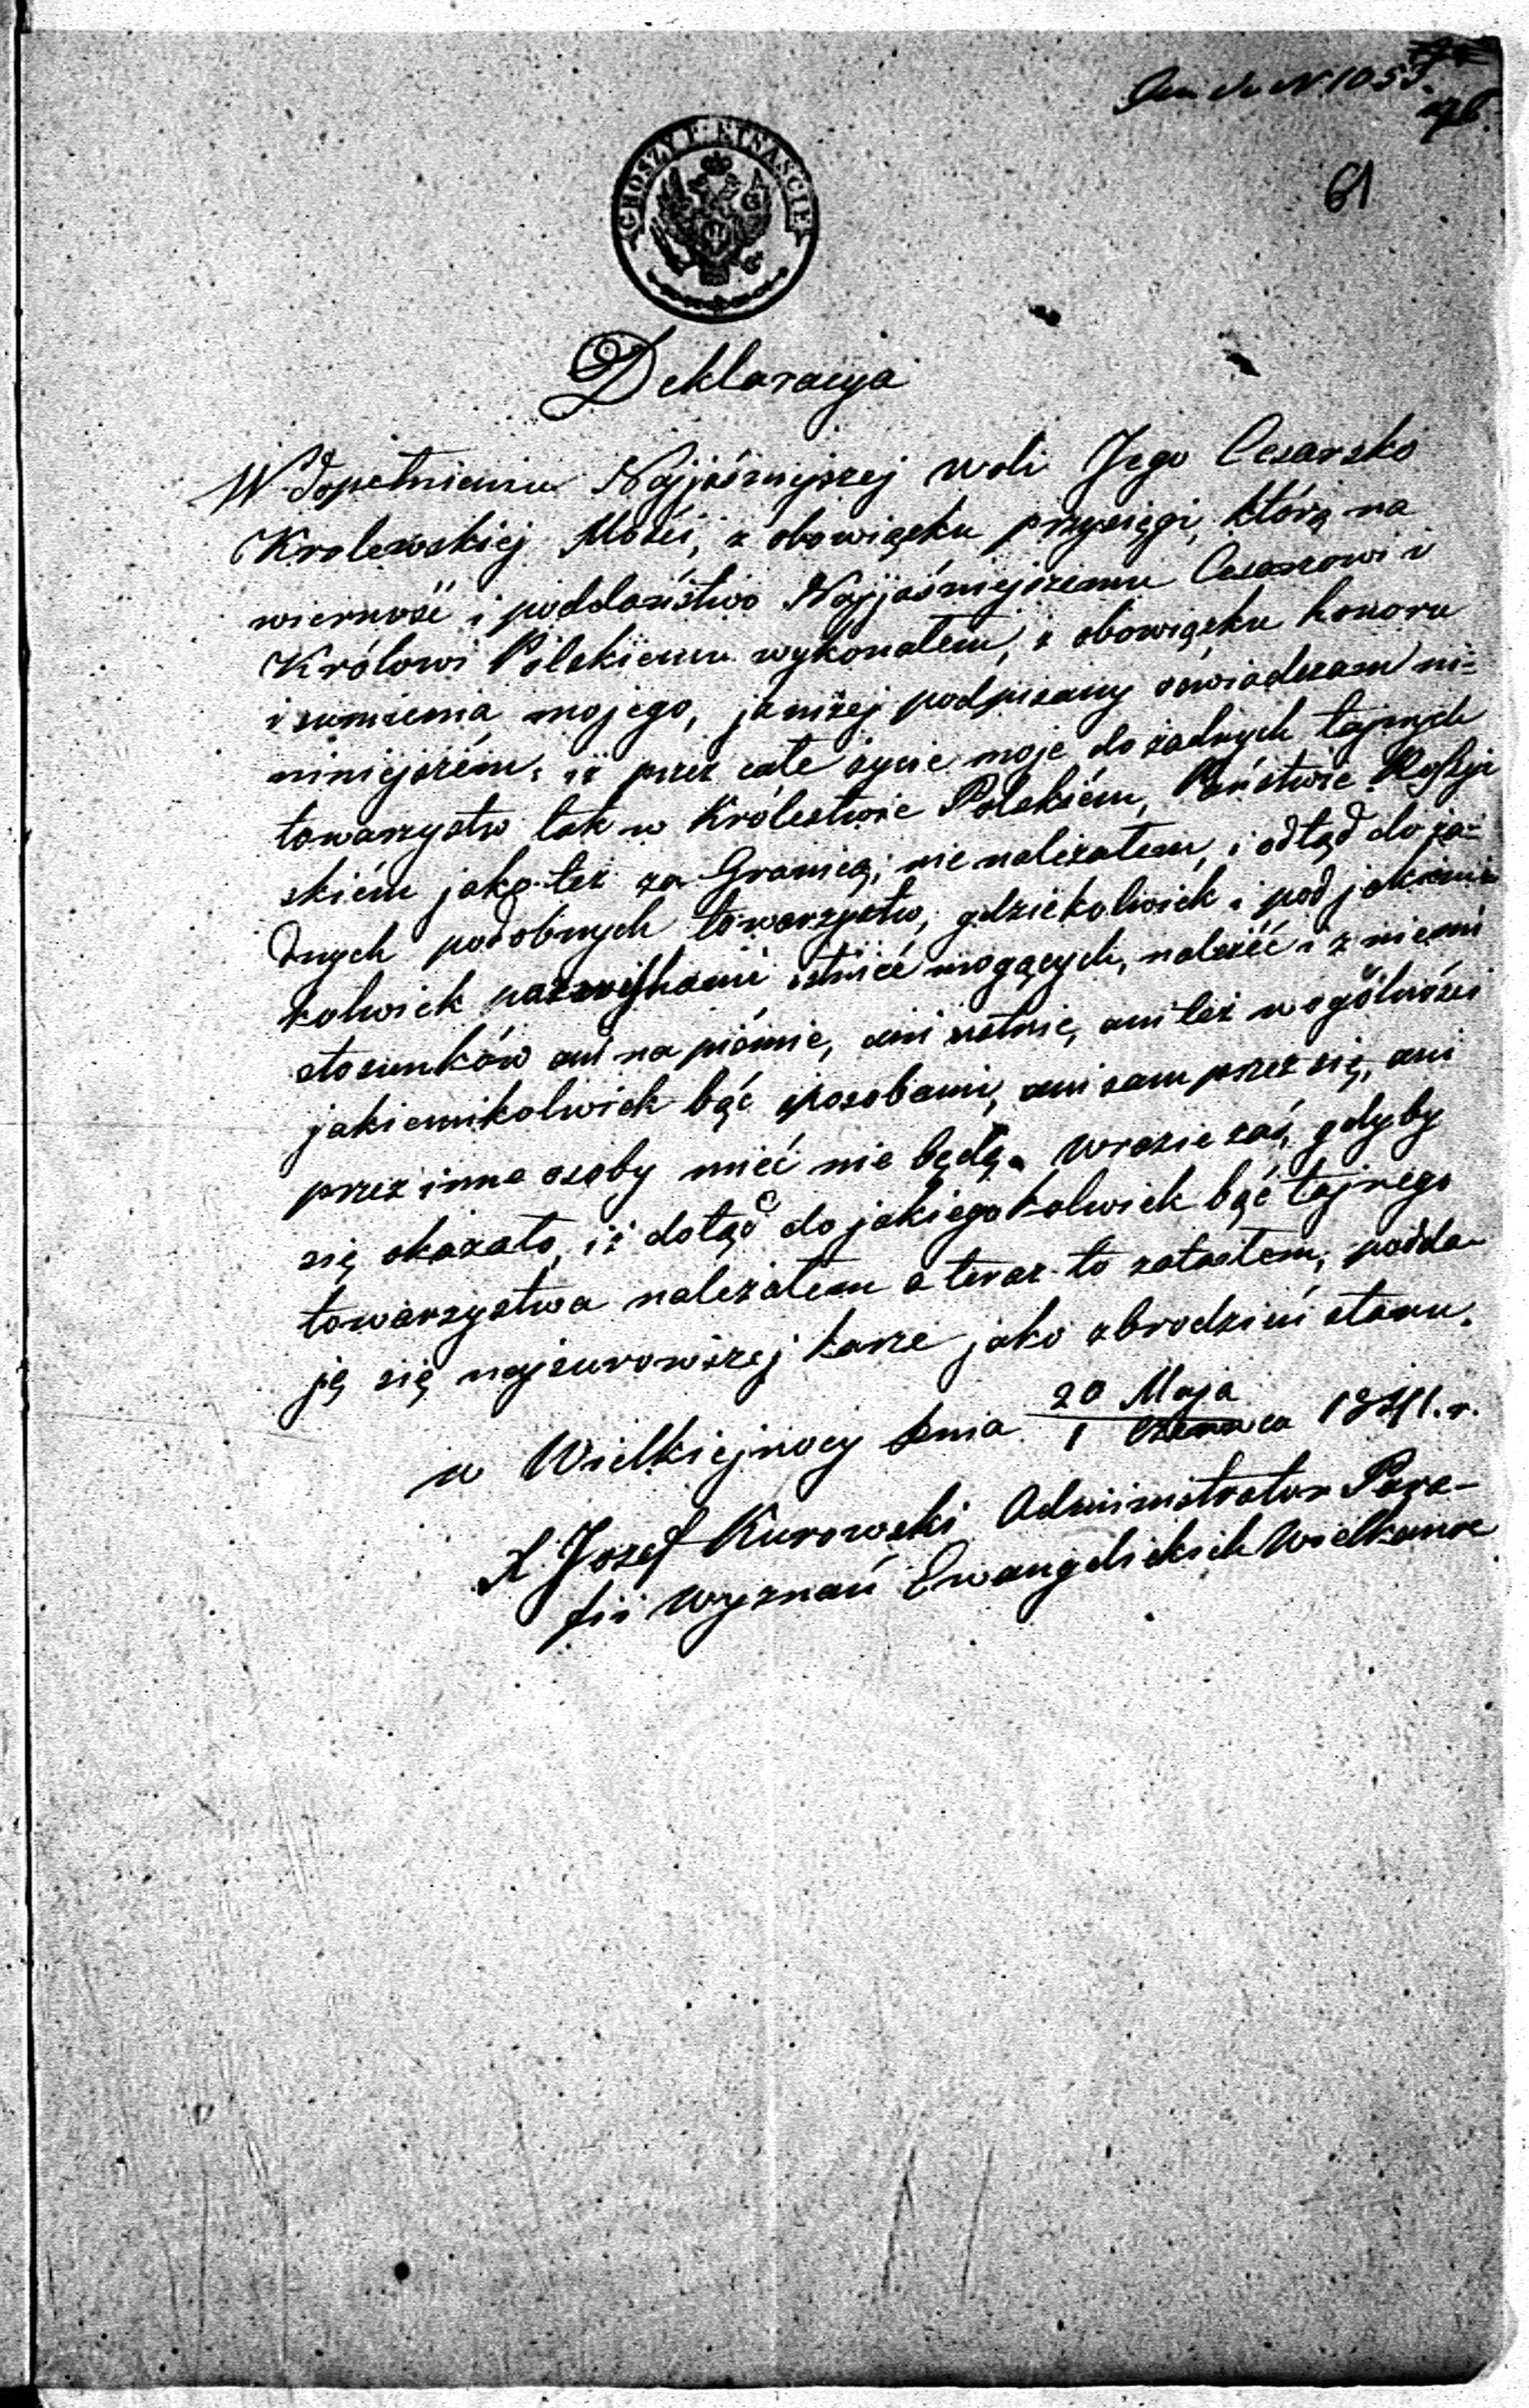 N 1053.
61
GROSZY PIETNAŚCIE
Deklaracya
W dopełnieniu Najjaśniejszej woli Jego Cesarsko
Krolewskiej Mości, z obowiązku przysięgi, którą na
wierność i poddaństwo Najjaśniejszemu Cesarzowi i
Królowi Polskiemu wykonałem, z obowiązku honoru
i sumienia mojego, ja niżej podpisany oświadczam ni=
niniejszém, iż przez całe życie moje do żadnych tajnych
towarzystw tak w Królestwie Polskiém, Państwie Rossyi
skiém jako też za Granicą, nie należałem, i odtąd do ża=
dnych podobnych towarzystw, gdziekolwiek i pod jakiemi
kolwiek nazwiskami istnieć mogących, należéć i z niemi
stosunków ani na piśmie, ani ustnie, ani też w ogólności
jakiemikolwiek bąć sposobami, ani sam przez się, ani
przez inne osoby mieć nie będę. W razie zaś, gdyby
się okazało, iż dotąd do jakiegokolwiek bąć tajnego
towarzystwa należałem a teraz to zataiłem, podda-
ję się najsurowszej karze jako zbrodzień stanu.
w Wielkiejnocy dnia 20 Maja / 1 Czerwca 1841. r.
X. Jozef Kurowski Administrator Para-
fii Wyznań Ewangelickich Wielkanoc